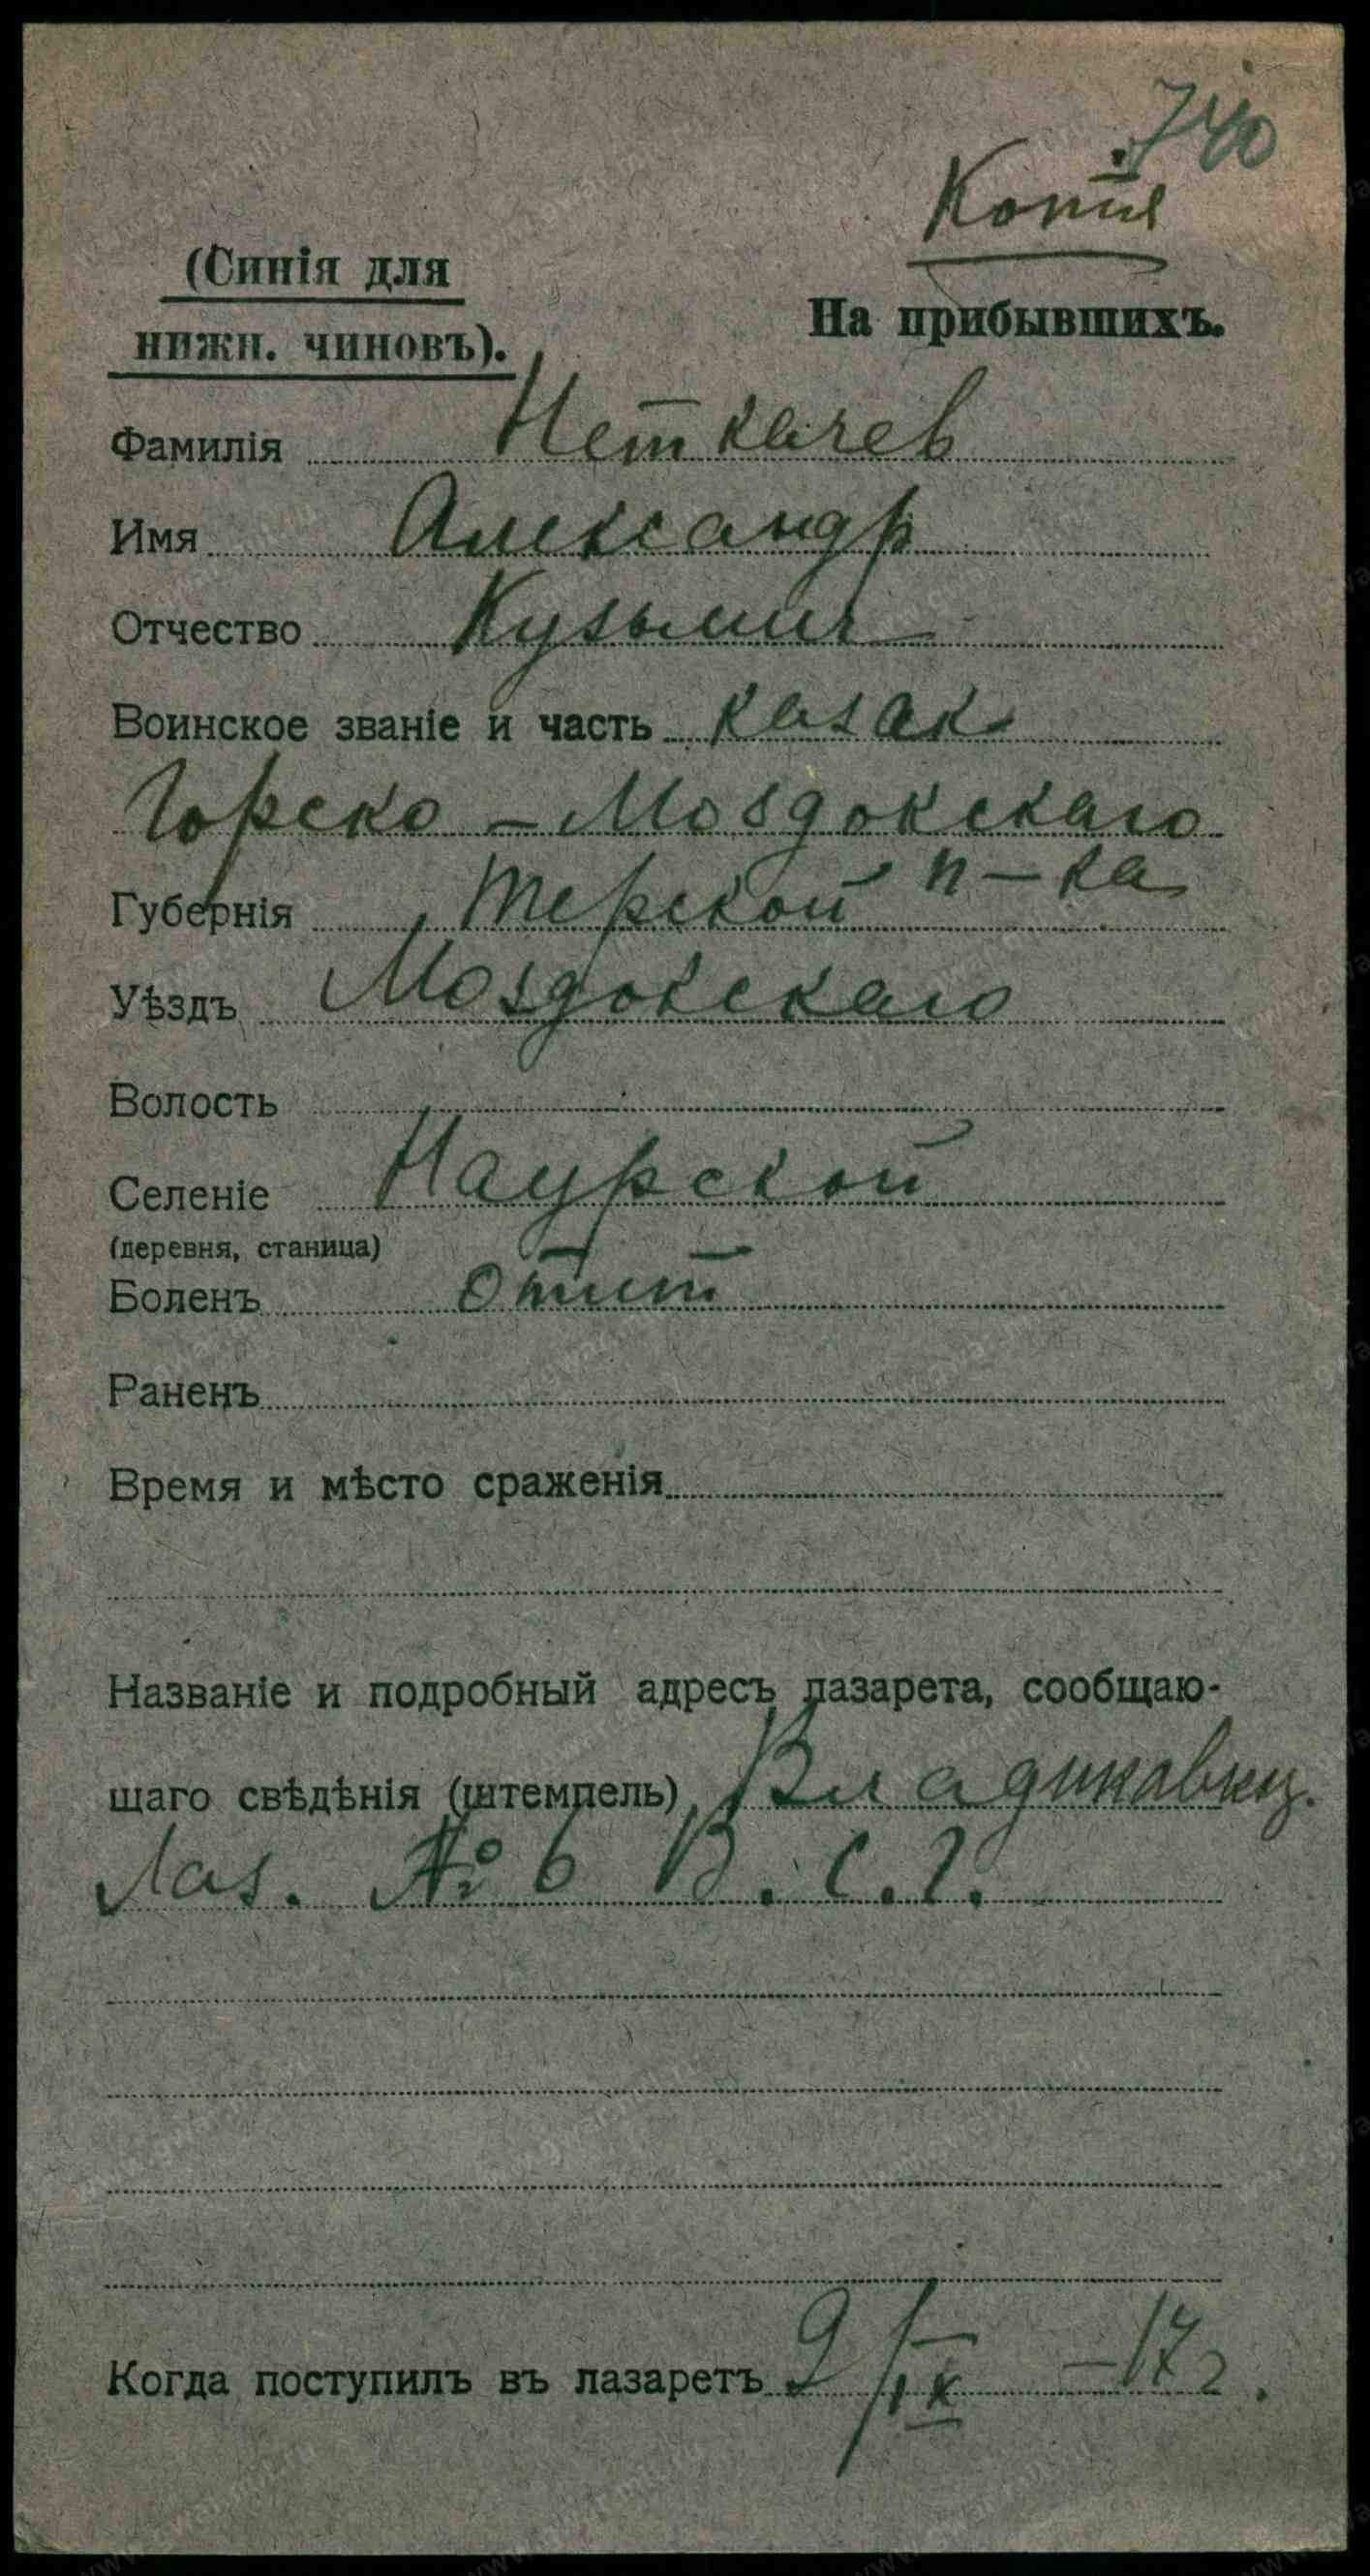 740
Копия
(Синія для
нижн. чиновъ).
На прибывшихъ.
Фамилія Неткачев
Имя Александр
Отчество Кузьмич
Воинское званіе и часть казак
Горско - Моздокскаго
п-ка
Губернія Терской
Уѣздъ Моздокскаго
Волость
Селеніе Наурской
(деревня, станица)
Боленъ Отит
Раненъ
Время и мѣсто сраженія
Названіе и подробный адресъ лазарета, сообщаю-
щаго свѣдѣнія (штемпель) Владикавкз.
Лаз. № 6 В. С. Г.
Когда поступилъ въ лазаретъ 9/IX - 17 г.